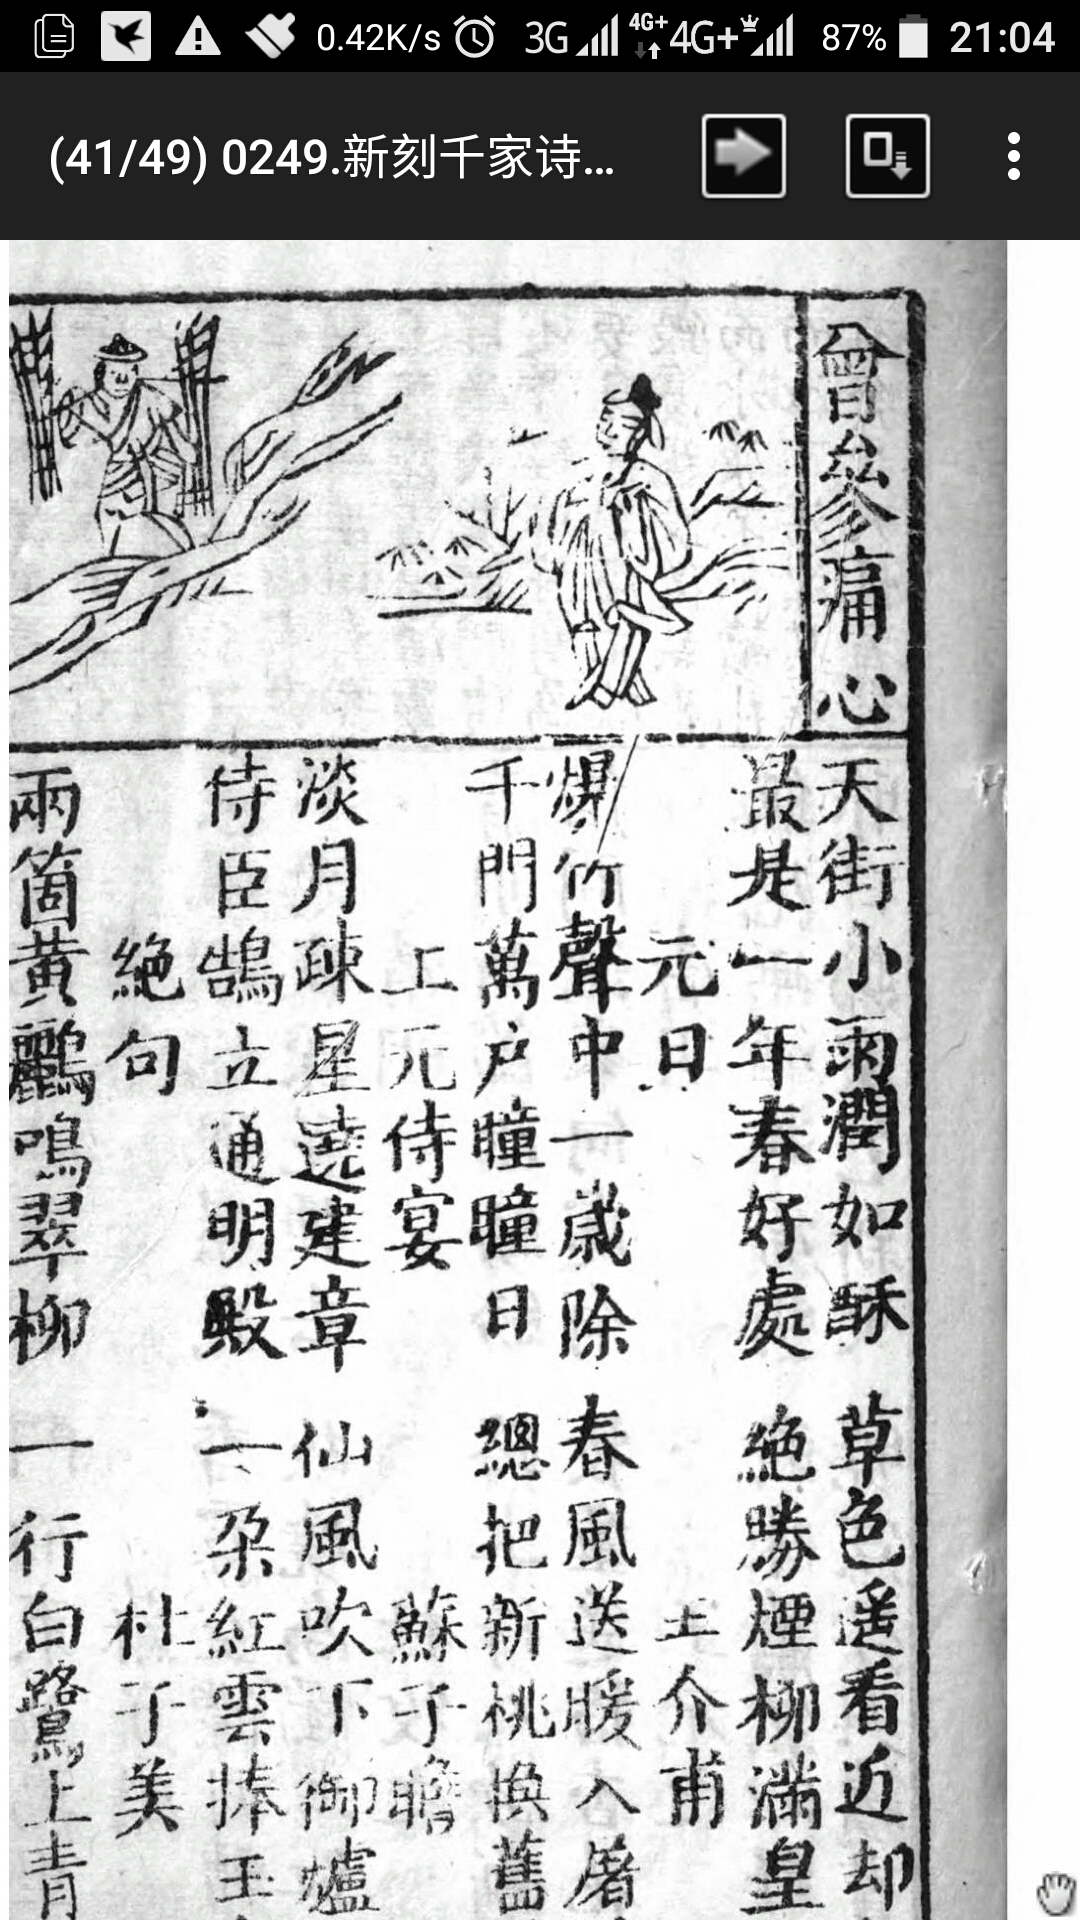 0.42K/s 3G 4G+ 4G+ 87% 21:04
(41/49) 0249.新刻千家诗...
曾參痛心
天街小雨潤如酥 草色遥看近却
最是一年春好處 絶勝煙柳滿皇
元日 王介甫
爆竹聲中一歲除 春風送暖入屠
千門萬户瞳瞳日 總把新桃換舊
上元侍宴 蘇子瞻
淡月疎星遶建章 仙風吹下御爐
侍臣鵠立通明殿 一朶紅雲捧玉
絶句 杜子美
兩箇黄鸝鳴翠柳 一行白鷺上青